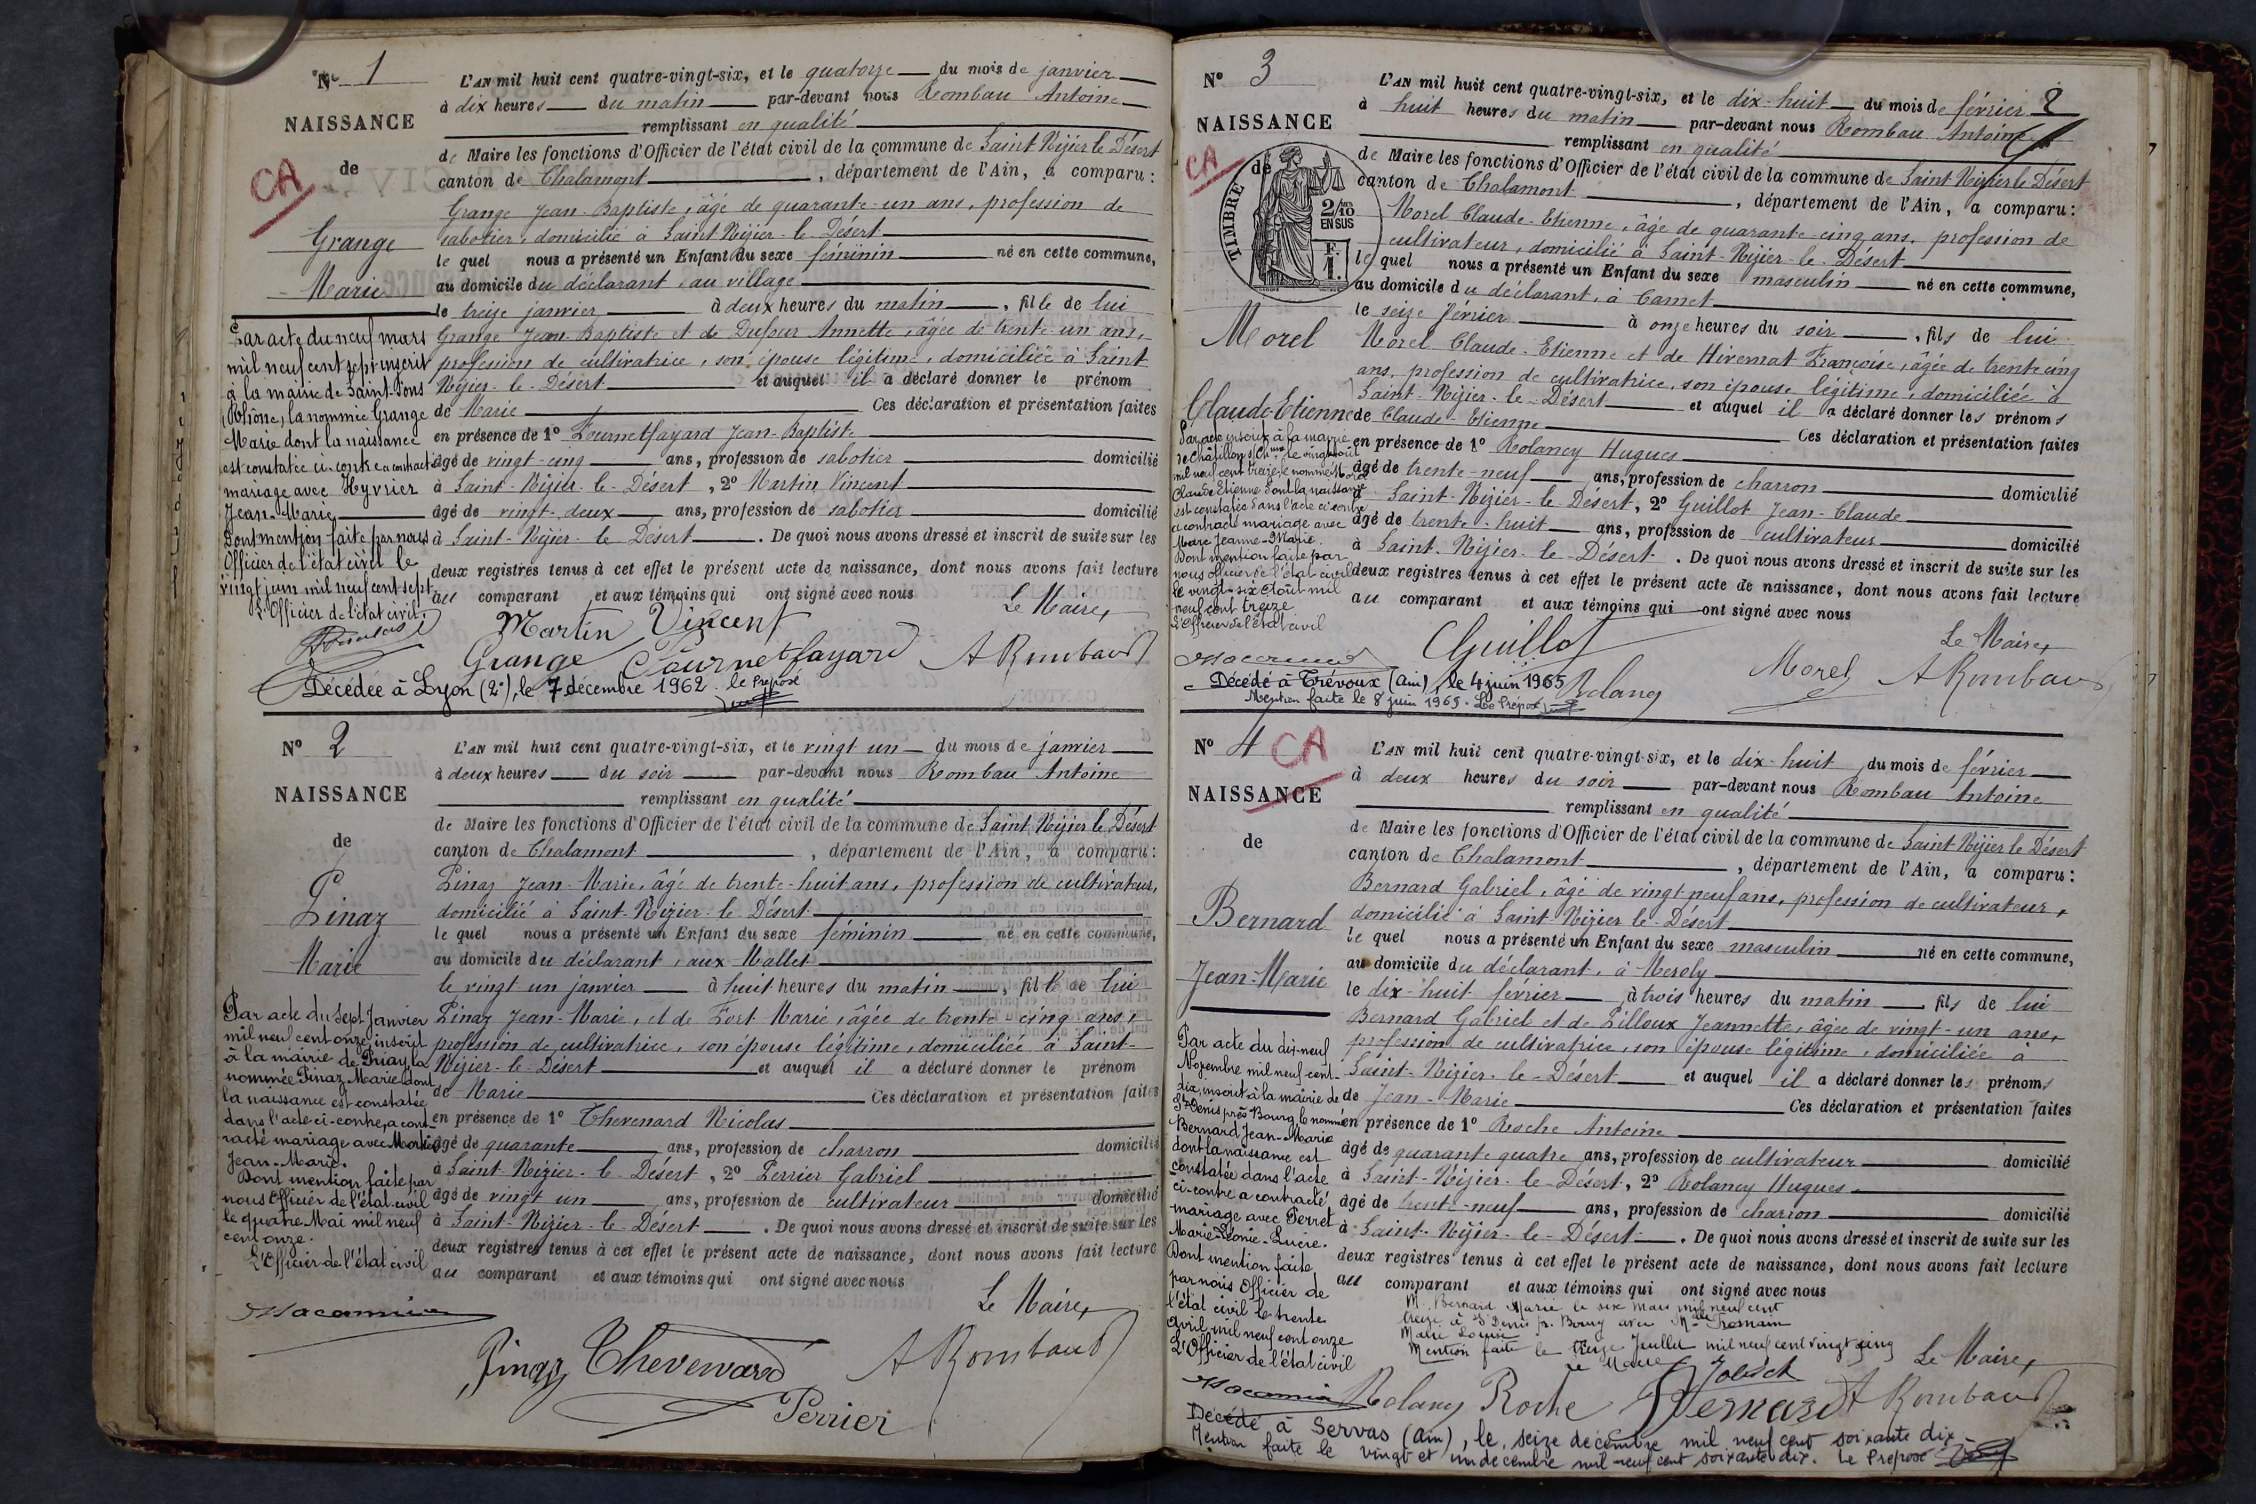 N° 1
NAISSANCE
de
CA
Grange
Marie
L'AN mil huit cent quatre-vingt-six, et le quatorze du mois de janvier
à dix heures du matin par-devant nous Rombau Antoine
remplissant en qualité
de Maire les fonctions d'Officier de l'état civil de la commune de Saint Nizier le Désert
canton de Chalamont, département de l'Ain, a comparu:
Grange Jean-Baptiste, âgé de quarante-un ans, profession de
sabotier, domicilié à Saint Nizier-le-Désert
le quel nous a présenté un Enfant du sexe féminin né en cette commune,
au domicile du déclarant, au village
le treize janvier à deux heures du matin, fille de lui
Grange Jean-Baptiste et de Dufour Annette, âgée de trente-un ans,
profession de cultivatrice, son épouse légitime, domiciliée à Saint
Nizier-le-Désert et auquel il a déclaré donner le prénom
de Marie Ces déclaration et présentation faites
en présence de 1° Fournetfayard Jean-Baptiste
âgé de vingt-cinq ans, profession de sabotier domicilié
à Saint-Nizier-le-Désert, 2° Martin Vincent
âgé de vingt-deux ans, profession de sabotier domicilié
à Saint-Nizier-le-Désert. De quoi nous avons dressé et inscrit de suite sur les
deux registres tenus à cet effet le présent acte de naissance, dont nous avons fait lecture
au comparant et aux témoins qui ont signé avec nous
Le Maire,
Martin Vincent
Grange Fournetfayard A Rombaud
Par acte du neuf mars
mil neuf cent sept inscrit
à la mairie de Saint-Fons
(Rhône) la nommée Grange
Marie dont la naissance
est constatée ci-contre a contracté
mariage avec Hyvrier
Jean-Marie
Dont mention faite par nous
Officier de l'état civil le
vingt juin mil neuf cent sept
L'Officier de l'état civil
Décédée à Lyon (2e), le 7 décembre 1962. le Préposé
N° 2
NAISSANCE
de
Pinaz
Marie
L'AN mil huit cent quatre-vingt-six, et le vingt un du mois de janvier
à deux heures du soir par-devant nous Rombau Antoine
remplissant en qualité
de Maire les fonctions d'Officier de l'état civil de la commune de Saint Nizier le Désert
canton de Chalamont, département de l'Ain, a comparu:
Pinaz Jean-Marie, âgé de trente-huit ans, profession de cultivateur,
domicilié à Saint-Nizier-le-Désert
le quel nous a présenté un Enfant du sexe féminin né en cette commune,
au domicile du déclarant, aux Mallet
le vingt un janvier à huit heures du matin, fille de lui
Pinaz Jean-Marie, et de Fort Marie, âgée de trente-cinq ans,
profession de cultivatrice, son épouse légitime, domiciliée à Saint-
Nizier-le-Désert et auquel il a déclaré donner le prénom
de Marie Ces déclaration et présentation faites
en présence de 1° Thevenard Nicolas
âgé de quarante ans, profession de charron domicilié
à Saint-Nizier-le-Désert, 2° Perrier Gabriel
âgé de vingt un ans, profession de cultivateur domicilié
à Saint-Nizier-le-Désert. De quoi nous avons dressé et inscrit de suite sur les
deux registres tenus à cet effet le présent acte de naissance, dont nous avons fait lecture
au comparant et aux témoins qui ont signé avec nous
Le Maire,
Pinaz Thevenard A Rombaud
Perrier
Par acte du sept Janvier
mil neuf cent onze, inscrit
à la mairie de Priay, la
nommée Pinaz Marie dont
la naissance est constatée
dans l'acte ci-contre, a con-
racté mariage avec
Jean-Marie.
Dont mention faite par
nous Officier de l'état-civil
le quatre Mai mil neuf
cent onze.
L'Officier de l'état civil
N° 3
NAISSANCE
de
CA
TIMBRE
2/10
EN SUS
F.
1.
Morel
Claude-Etienne
2
L'AN mil huit cent quatre-vingt-six, et le dix-huit du mois de février
à huit heures du matin par-devant nous Rombau Antoine
remplissant en qualité
de Maire les fonctions d'Officier de l'état civil de la commune de Saint Nizier le Désert
canton de Chalamont, département de l'Ain, a comparu:
Morel Claude-Etienne, âgé de quarante-cinq ans, profession de
cultivateur, domicilié à Saint-Nizier-le-Désert
le quel nous a présenté un Enfant du sexe masculin né en cette commune,
au domicile du déclarant, à Camet
le seize février à onze heures du soir, fils de lui
Morel Claude-Etienne et de Hivernat Françoise, âgée de trente cinq
ans, profession de cultivatrice, son épouse légitime, domiciliée à
Saint-Nizier-le-Désert et auquel il a déclaré donner les prénoms
de Claude-Etienne Ces déclaration et présentation faites
en présence de 1° Rolancy Hugues
âgé de trente-neuf ans, profession de charron domicilié
à Saint-Nizier-le-Désert, 2° Guillot Jean-Claude
âgé de trente-huit ans, profession de cultivateur domicilié
à Saint-Nizier-le-Désert. De quoi nous avons dressé et inscrit de suite sur les
deux registres tenus à cet effet le présent acte de naissance, dont nous avons fait lecture
au comparant et aux témoins qui ont signé avec nous
Le Maire,
Guillot Morel A Rombaud
Rolancy
Par acte inscrit à la mairie
de Châtillon s/Ch., le vingt août
mil neuf cent treize, le nommé Morel
Claude Etienne dont la naissance
est constatée dans l'acte ci-contre
a contracté mariage avec
Marc Jeanne-Marie.
Dont mention faite par
nous officier de l'état civil
le vingt-six août mil
neuf cent treize
L'Officier de l'état civil
Décédé à Trévoux (Ain), le 4 juin 1965
Mention faite le 8 juin 1965. Le Préposé
N° 4
CA
NAISSANCE
de
Bernard
Jean-Marie
L'AN mil huit cent quatre-vingt-six, et le dix-huit du mois de février
à deux heures du soir par-devant nous Rombau Antoine
remplissant en qualité
de Maire les fonctions d'Officier de l'état civil de la commune de Saint Nizier le Désert
canton de Chalamont, département de l'Ain, a comparu:
Bernard Gabriel, âgé de vingt neuf ans, profession de cultivateur,
domicilié à Saint Nizier le Désert
le quel nous a présenté un Enfant du sexe masculin né en cette commune,
au domicile du déclarant, à Meroly
le dix-huit février à trois heures du matin fils de lui
Bernard Gabriel et de Pilloux Jeannette, âgée de vingt-un ans,
profession de cultivatrice, son épouse légitime, domiciliée à
Saint-Nizier-le-Désert et auquel il a déclaré donner les prénoms
de Jean-Marie Ces déclaration et présentation faites
en présence de 1° Roche Antoine
âgé de quarante quatre ans, profession de cultivateur domicilié
à Saint-Nizier-le-Désert, 2° Rolancy Hugues
âgé de trente-neuf ans, profession de charron domicilié
à Saint-Nizier-le-Désert. De quoi nous avons dressé et inscrit de suite sur les
deux registres tenus à cet effet le présent acte de naissance, dont nous avons fait lecture
au comparant et aux témoins qui ont signé avec nous
M. Bernard Marié le six Mars mil neuf cent
treize à St Denis p. Bourg avec Mlle
Marie Louise
Mention faite le treize Juillet mil neuf cent vingt cinq
Le Maire
Le Maire,
Rolancy Roche Bernard A Rombaud
Par acte du dix-neuf
Novembre mil neuf cent-
dix, inscrit à la mairie de
St Denis près Bourg, le nommé
Bernard Jean-Marie
dont la naissance est
constatée dans l'acte
ci-contre a contracté
mariage avec Perret
Marie-Léonie-Lucie.
Dont mention faite
par nous Officier de
l'état civil le trente
Avril mil neuf cent onze
L'Officier de l'état civil
Décédé à Servas (Ain), le seize décembre mil neuf cent soixante dix
Mention faite le vingt et un décembre mil neuf cent soixante dix. Le Préposé